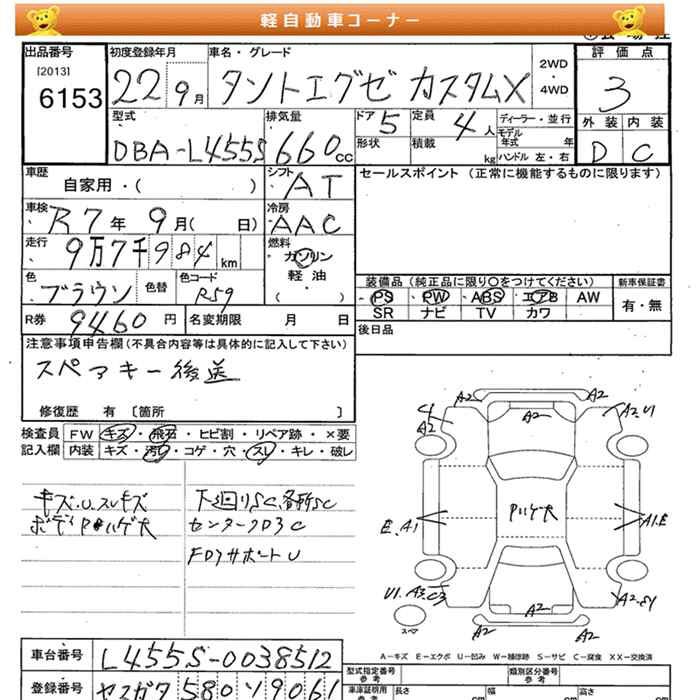 軽自動車コーナー
出品番号 初度登録年月 車名・グレード 2WD・4WD 評価点
[2013]
6153 22 9月 タントエグゼ カスタムX 3
型式 排気量 ドア 定員 ディーラー・並行 外装 内装
DBA-L455S 660cc 5 4人 モデル年式 年 D C
形状 積載 kg ハンドル 左・右
車歴 シフト セールスポイント (正常に機能するものに限ります)
自家用・( ) AT
車検 冷房
R7年 9月( 日) AAC
走行 燃料
9万7千984km ガソリン
軽油
色 色替 色コード ( ) 装備品 (純正品に限り○をつけてください) 新車保証書
ブラウン R59 PS・PW・ABS・エアB AW 有・無
SR ナビ TV カワ
R券 9460円 名変期限 月 日 後日品
注意事項申告欄(不具合内容等は具体的に記入して下さい)
スペアキー後送
修復歴 有 〔箇所 〕
検査員 FW キズ・飛石・ヒビ割・リペア跡・×要
記入欄 内装 キズ・汚れ・コゲ・穴・スレ・キレ・破レ
キズ.U.スレキズ 下廻りSC.各所SC
ボディPハゲ大 センタークロスC
FDアサポートU
A2 A2
A2
A2 A2.U1
Pハゲ大
E.A1 A1.E
U1.A3.C3 A2.S4
A2
スペア A2 A2
A-キズ E-エクボ U-凹み W-補修跡 S-サビ C-腐食 XX-交換済
車台番号 L455S-0038512
登録番号 580 ソ9061
型式指定番号 参考 類別区分番号 参考
車庫証明用 参考 長さ cm 幅 cm 高さ cm